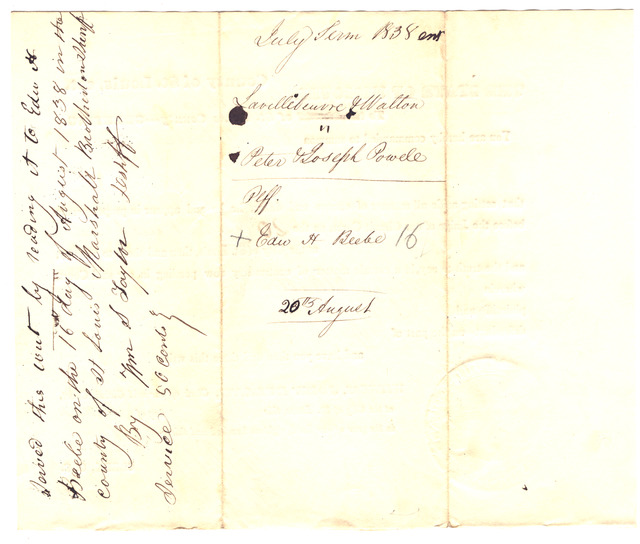 July Term 1838
Lavillebeuvre & Walton
"
Peter & Joseph Powele
Peff.
+ Edw H Beebe 16
20th August
Served this writ by reading it to Edw H
Beebe on the 16 day of August 1838 in the
county of St Louis Marshall Brotherton Sheriff
By Wm S Taylor
Service 50 Cents }